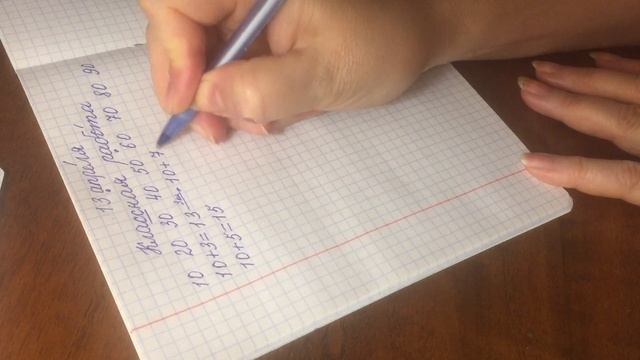 13 апреля
Классная работа
10 20 30 40 50 60 70 80 90
10+3=13 10+7
10+5=15